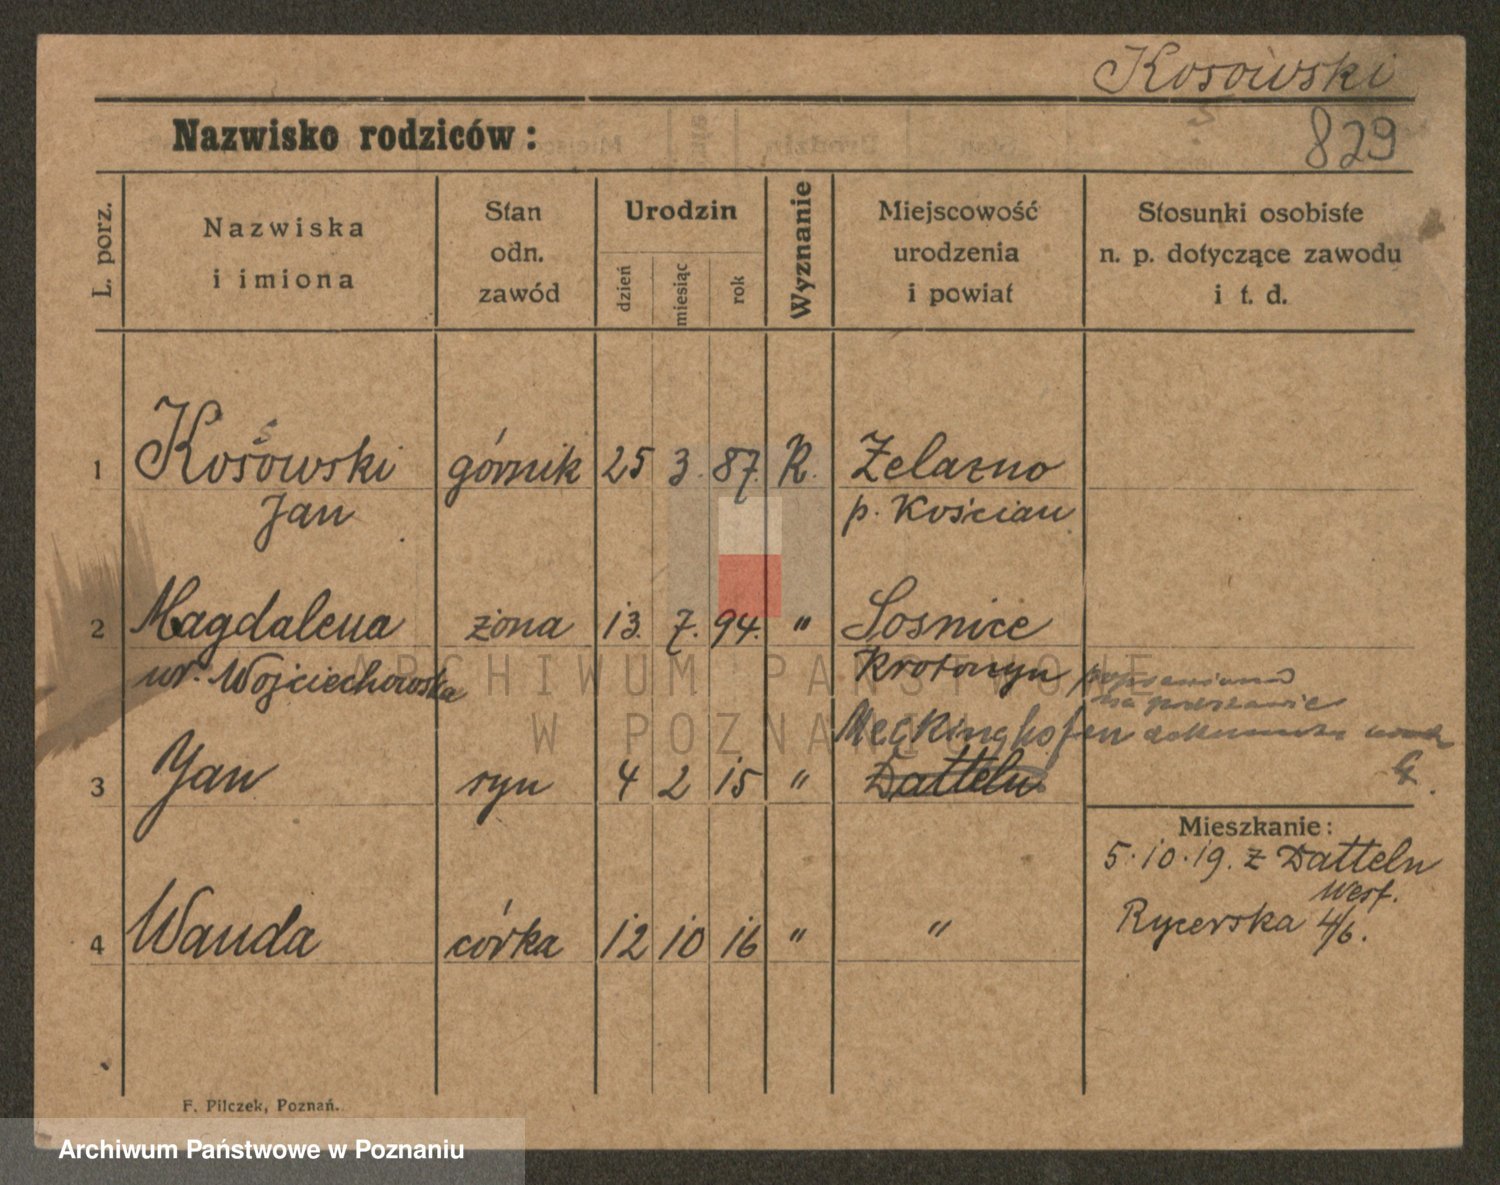 Kosowski
829
Nazwisko rodziców:
L. porz.
Nazwiska
i imiona
Stan
odn.
zawód
Urodzin
dzień
miesiąc
rok
Wyznanie
Miejscowość
urodzenia
i powiat
Stosunki osobiste
n. p. dotyczące zawodu
i t. d.
1 Kosowski górnik 25 3. 87. R. Żelazno
Jan p. Kościan
2 Magdalena żona 13. 7. 94. " Sośnice
ur. Wojciechowska Krotoszyn
na podstawie
Meckinghofen
3 Jan syn 4 2 15 " Datteln
Mieszkanie:
5.10.19. z Datteln
Westf.
Rycerska 4/6.
4 Wanda córka 12 10 16 " "
F. Pilczek, Poznań.
ARCHIWUM PAŃSTWOWE
W POZNANIU
Archiwum Państwowe w Poznaniu